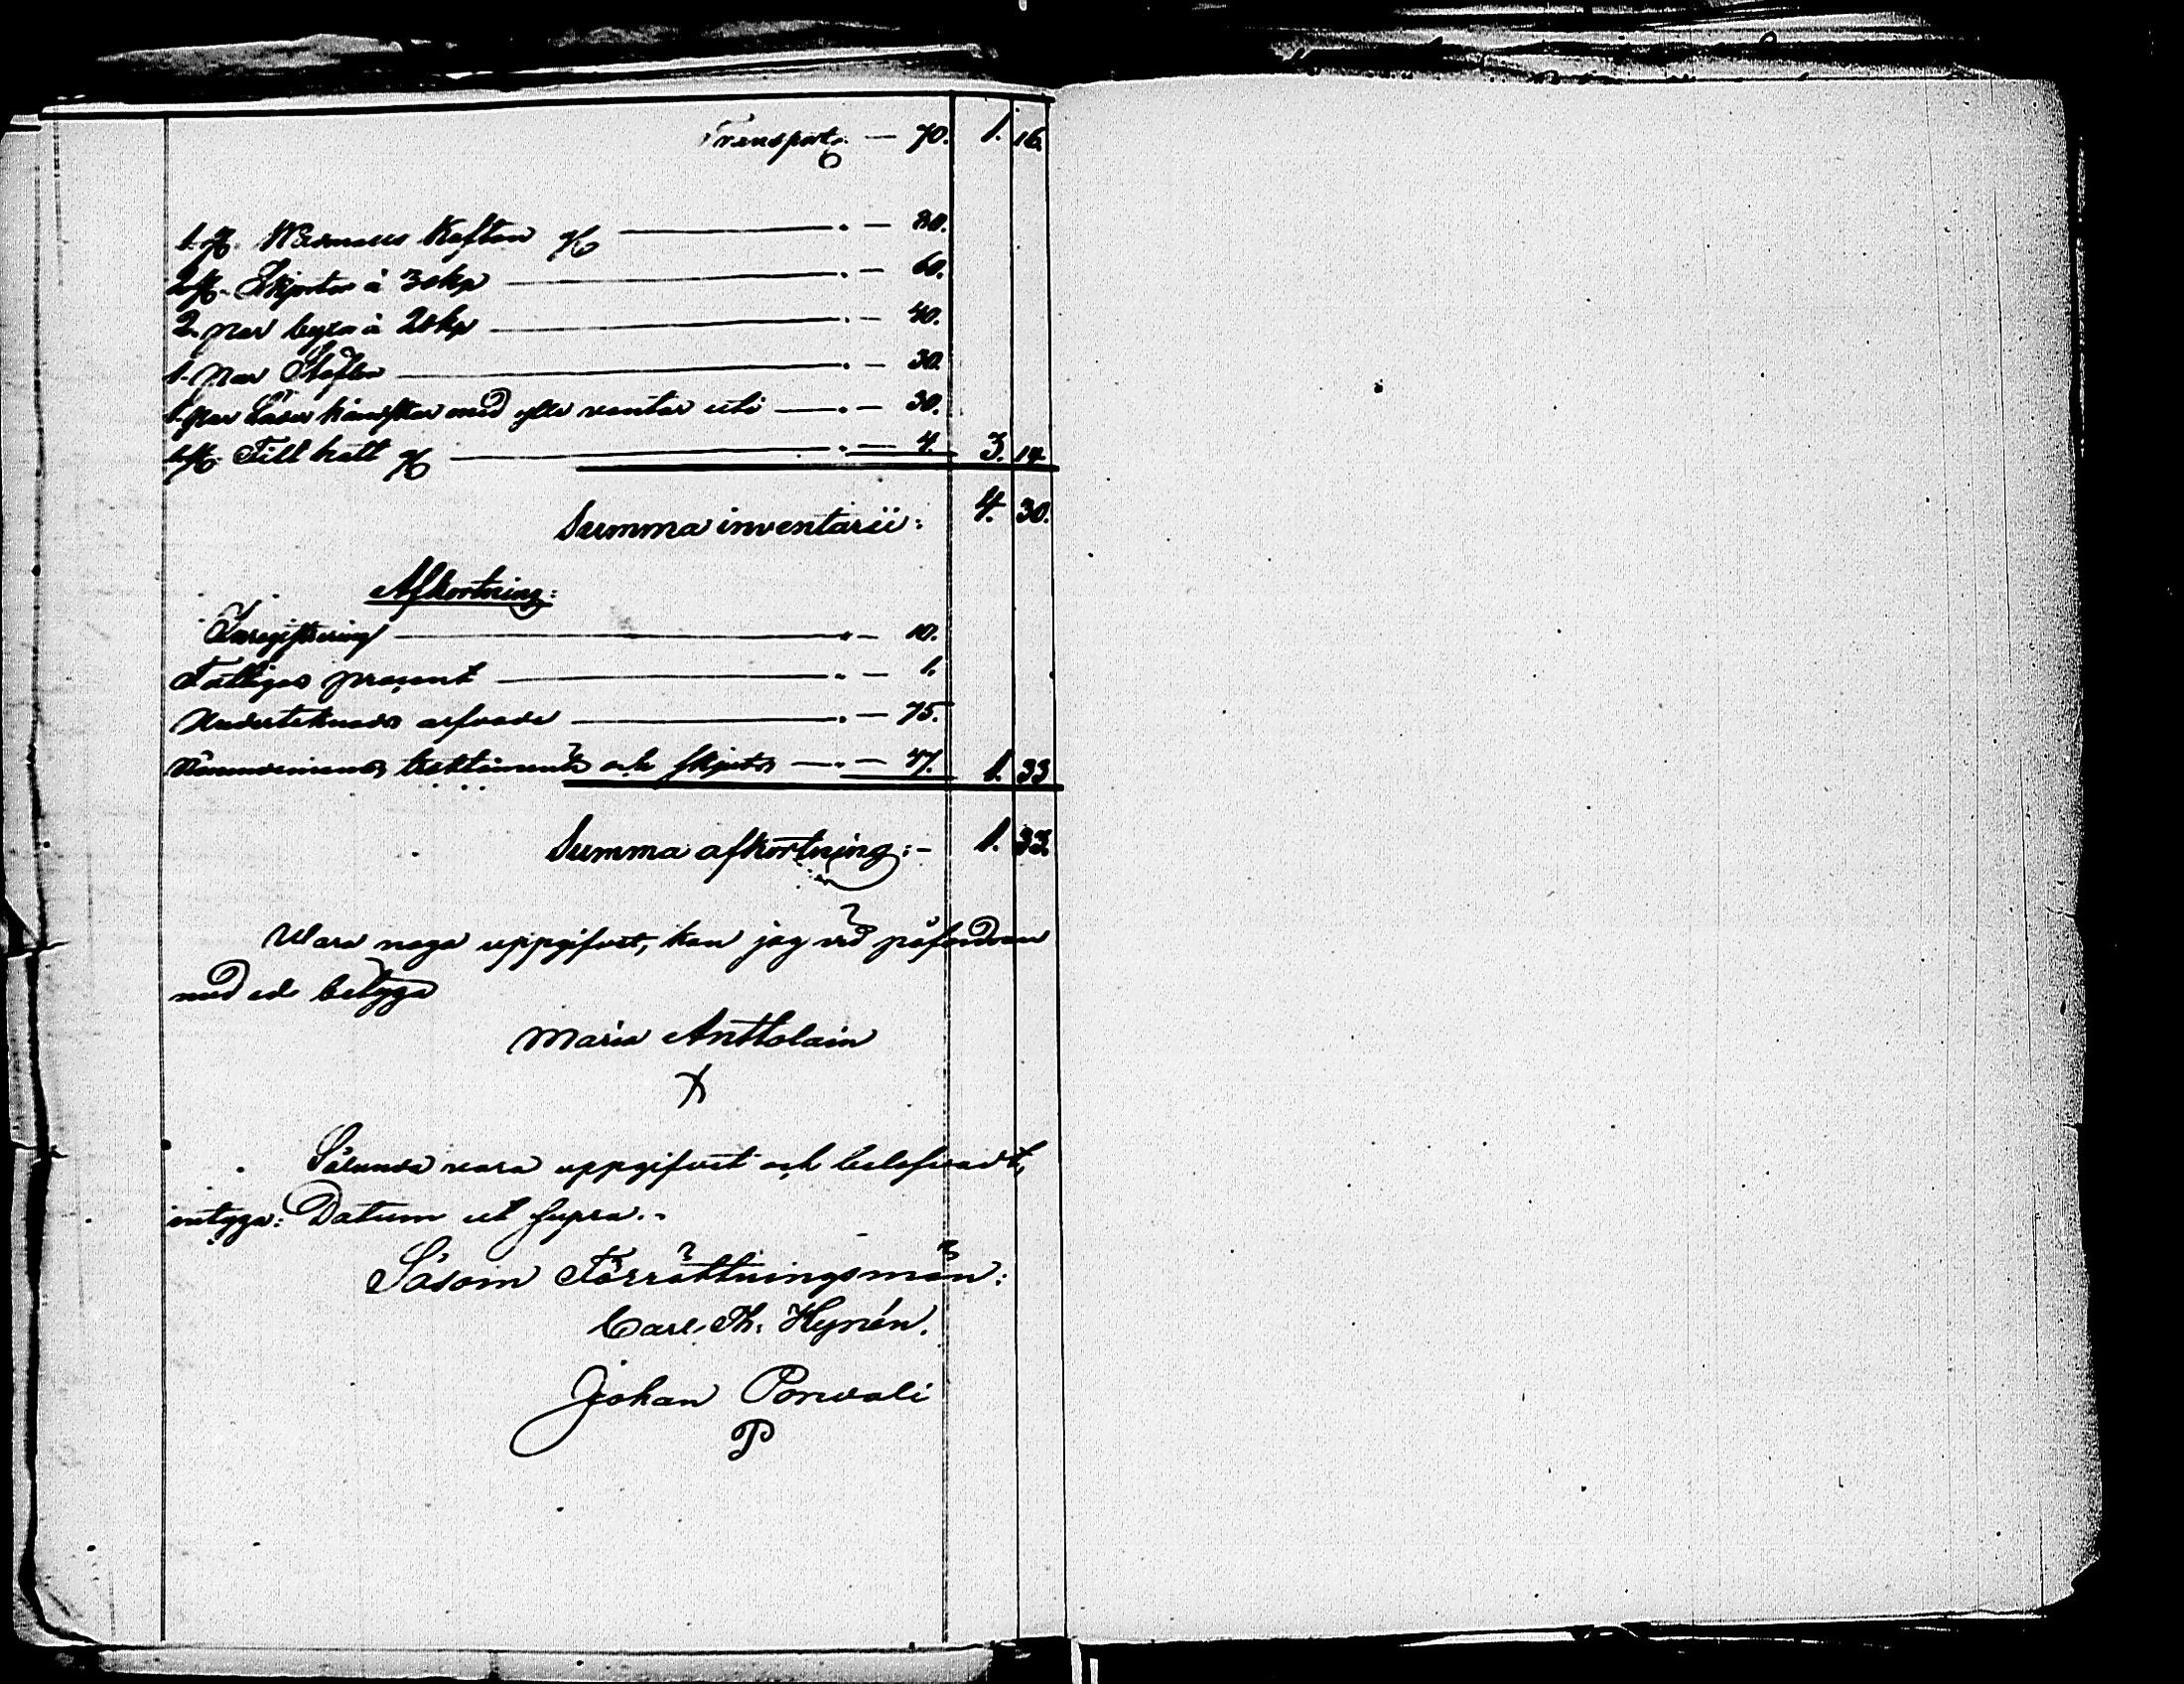 Transport. — 70. 1. 16.
1. st. Wadmals Kaftan st — . — 80.
2 st. Skjortor à 30 kp — . — 60.
2. par byxor à 20 kp — . — 40.
1. par Stöflor — . — 30.
1. par Läder handskar med ylle vantar uti — . — 30.
1 st. Filt hatt st — . — 4. 3. 14.
Summa inventarii: 4. 30.
Afkortning:
Inregistrering — . — 10.
Fattiges procent — . — 1.
Undertecknads arfvode — . — 75.
tracktamente och skjuts — . — 47. 1. 33
Summa afkortning:- 1. 33.
Wara noga uppgifvet, kan jag vid påfordran
med ed betyga
Maria Anttolain
X
Sålunda vara uppgifvet och belefvadt,
intyga: Datum ut supra.-
Såsom Förrättningsmän:
Carl. Th. Hyrén.
Johan Porvali
P